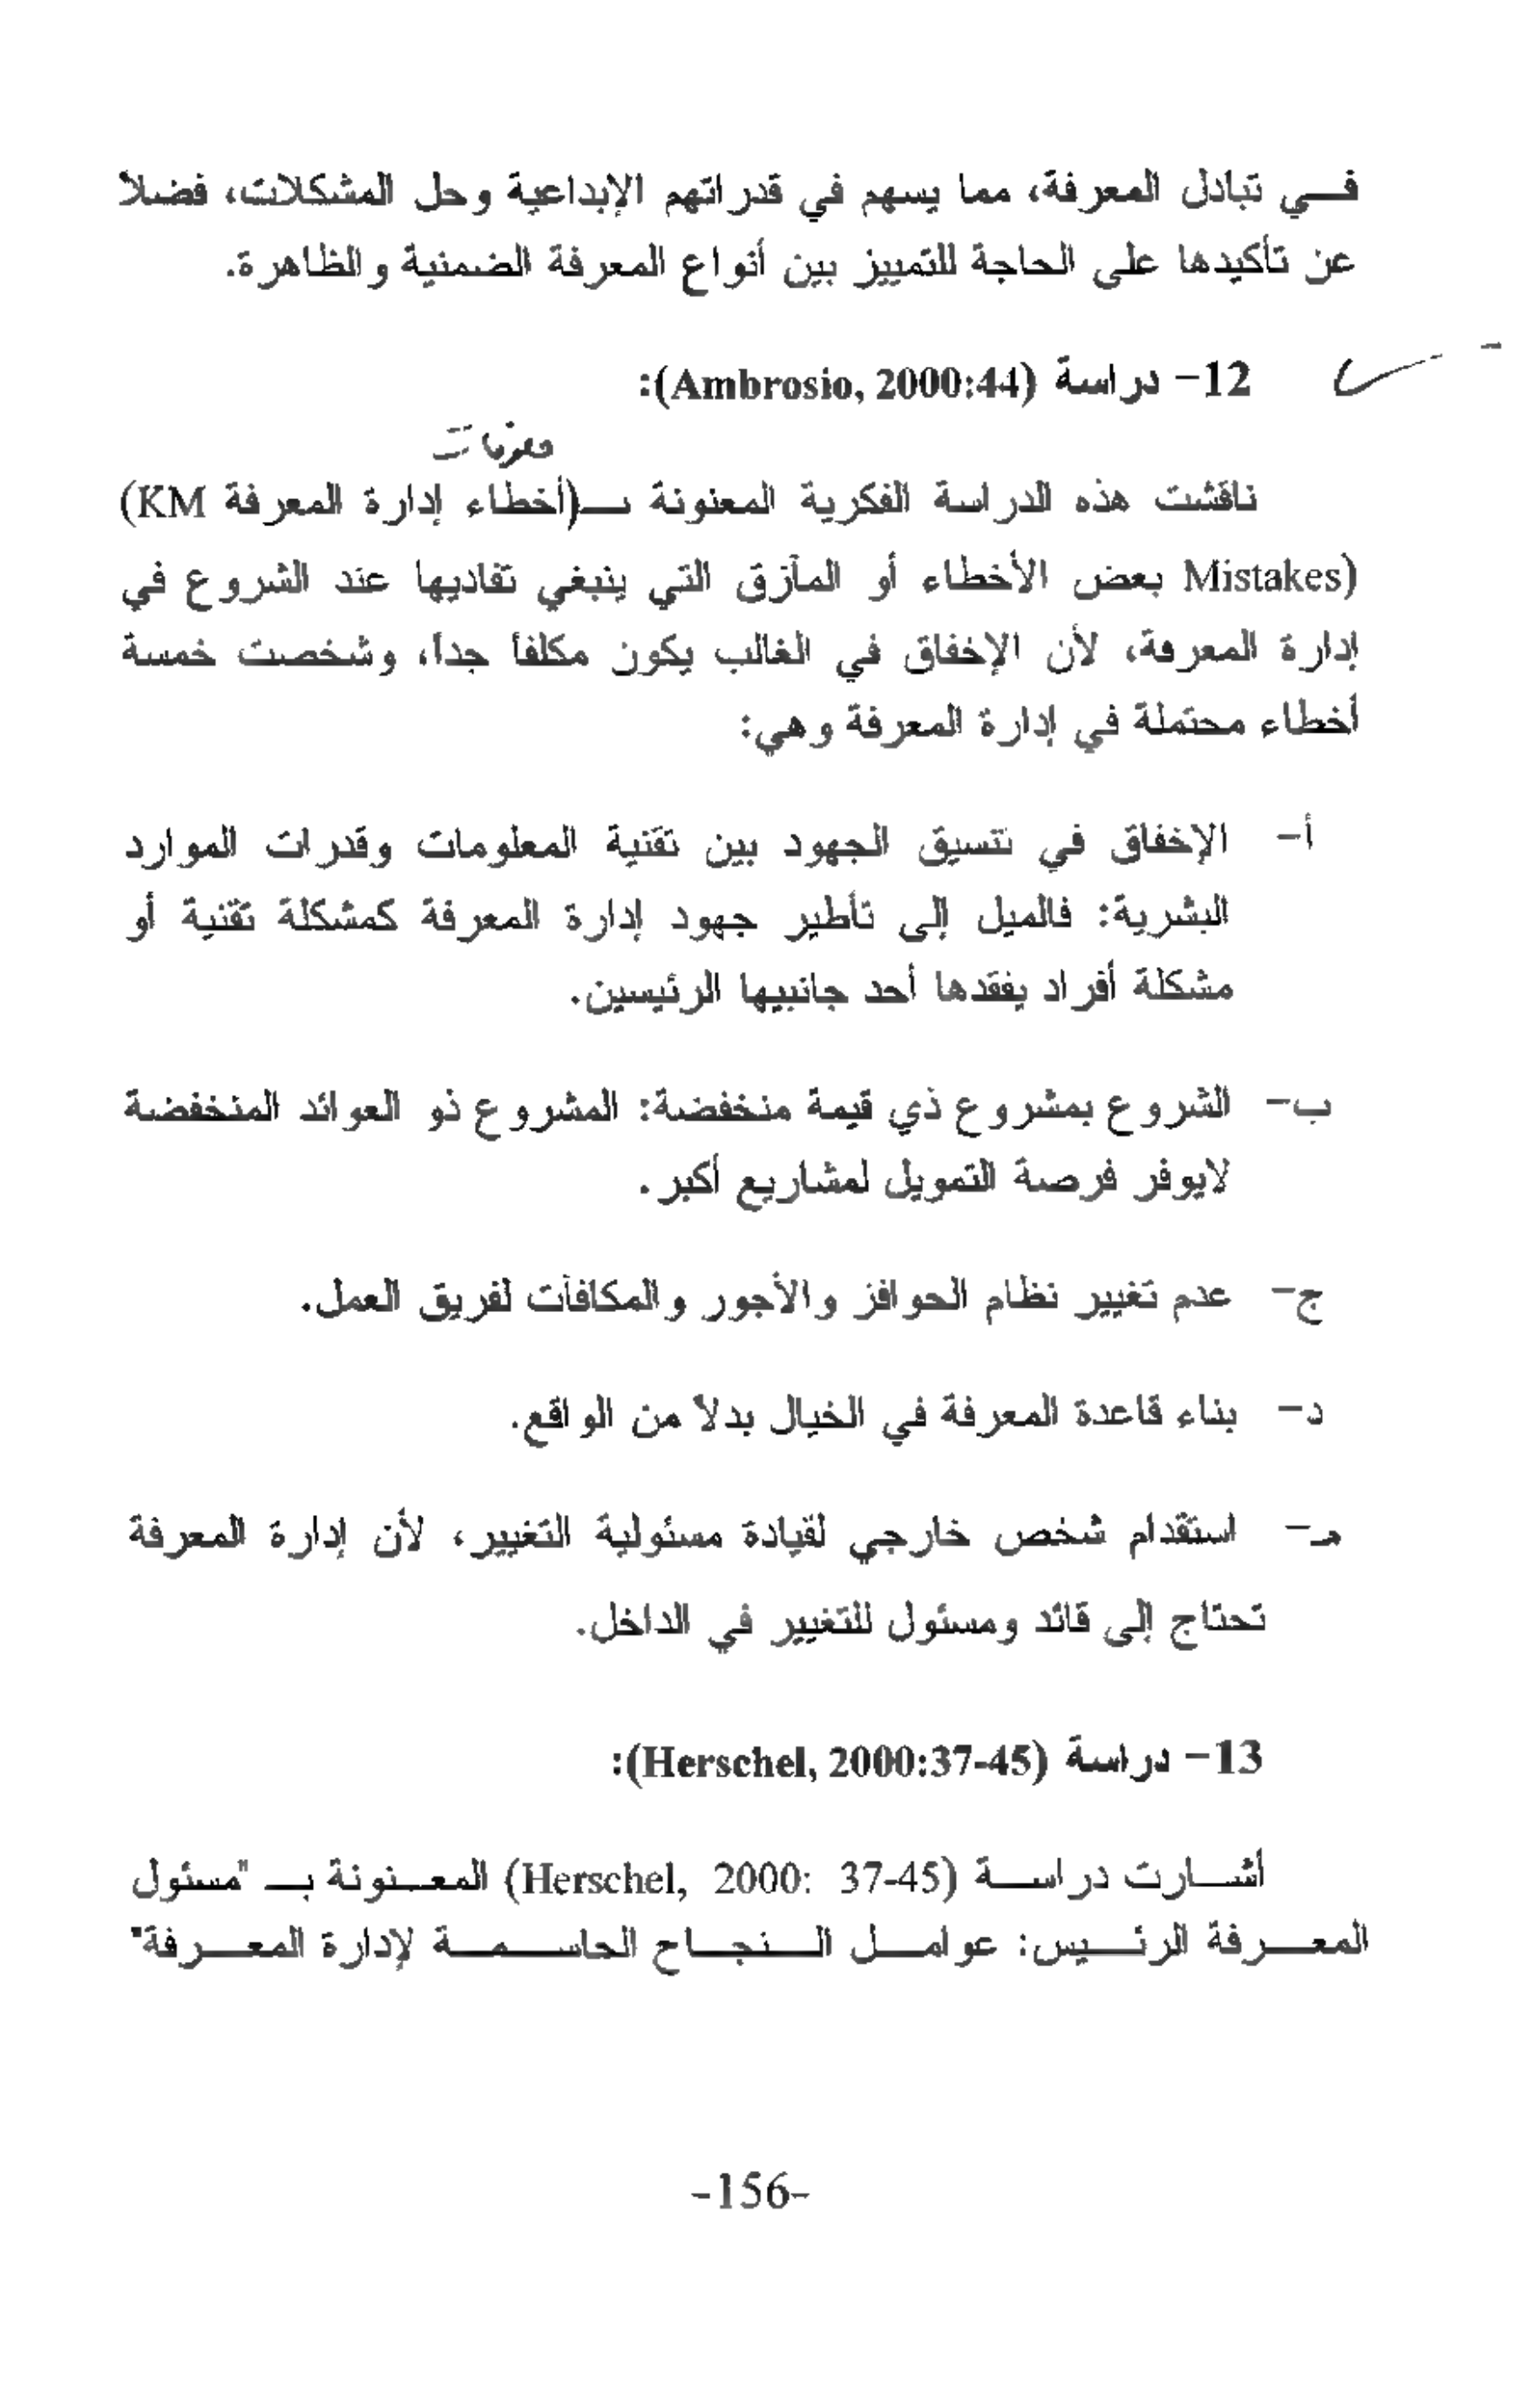 فـــي تبادل المعرفة، مما يسهم في قدراتهم الإبداعية وحل المشكلات، فضلاً
عن تأكيدها على الحاجة للتمييز بين أنواع المعرفة الضمنية والظاهرة.
12- دراسة (Ambrosio, 2000:44):
ناقشت هذه الدراسة الفكرية المعنونة بـ(أخطاء إدارة المعرفة KM
Mistakes) بعض الأخطاء أو المآزق التي ينبغي تفاديها عند الشروع في
إدارة المعرفة، لأن الإخفاق في الغالب يكون مكلفاً جداً، وشخصت خمسة
أخطاء محتملة في إدارة المعرفة وهي:
أ- الإخفاق في تنسيق الجهود بين تقنية المعلومات وقدرات الموارد
البشرية: فالميل إلى تأطير جهود إدارة المعرفة كمشكلة تقنية أو
مشكلة أفراد يفقدها أحد جانبيها الرئيسين.
ب- الشروع بمشروع ذي قيمة منخفضة: المشروع ذو العوائد المنخفضة
لايوفر فرصة التمويل لمشاريع أكبر.
ج- عدم تغيير نظام الحوافز والأجور والمكافآت لفريق العمل.
د- بناء قاعدة المعرفة في الخيال بدلاً من الواقع.
هـ- استقدام شخص خارجي لقيادة مسئولية التغيير، لأن إدارة المعرفة
تحتاج إلى قائد ومسئول للتغيير في الداخل.
13- دراسة (Herschel, 2000:37-45):
أشـــارت دراســـة (Herschel, 2000: 37-45) المعـــنونة بـــ "مسئول
المعـــرفة الرئـــيس: عوامـــل الـــنجـــاح الحاســـمـــة لإدارة المعـــرفة"
-156-